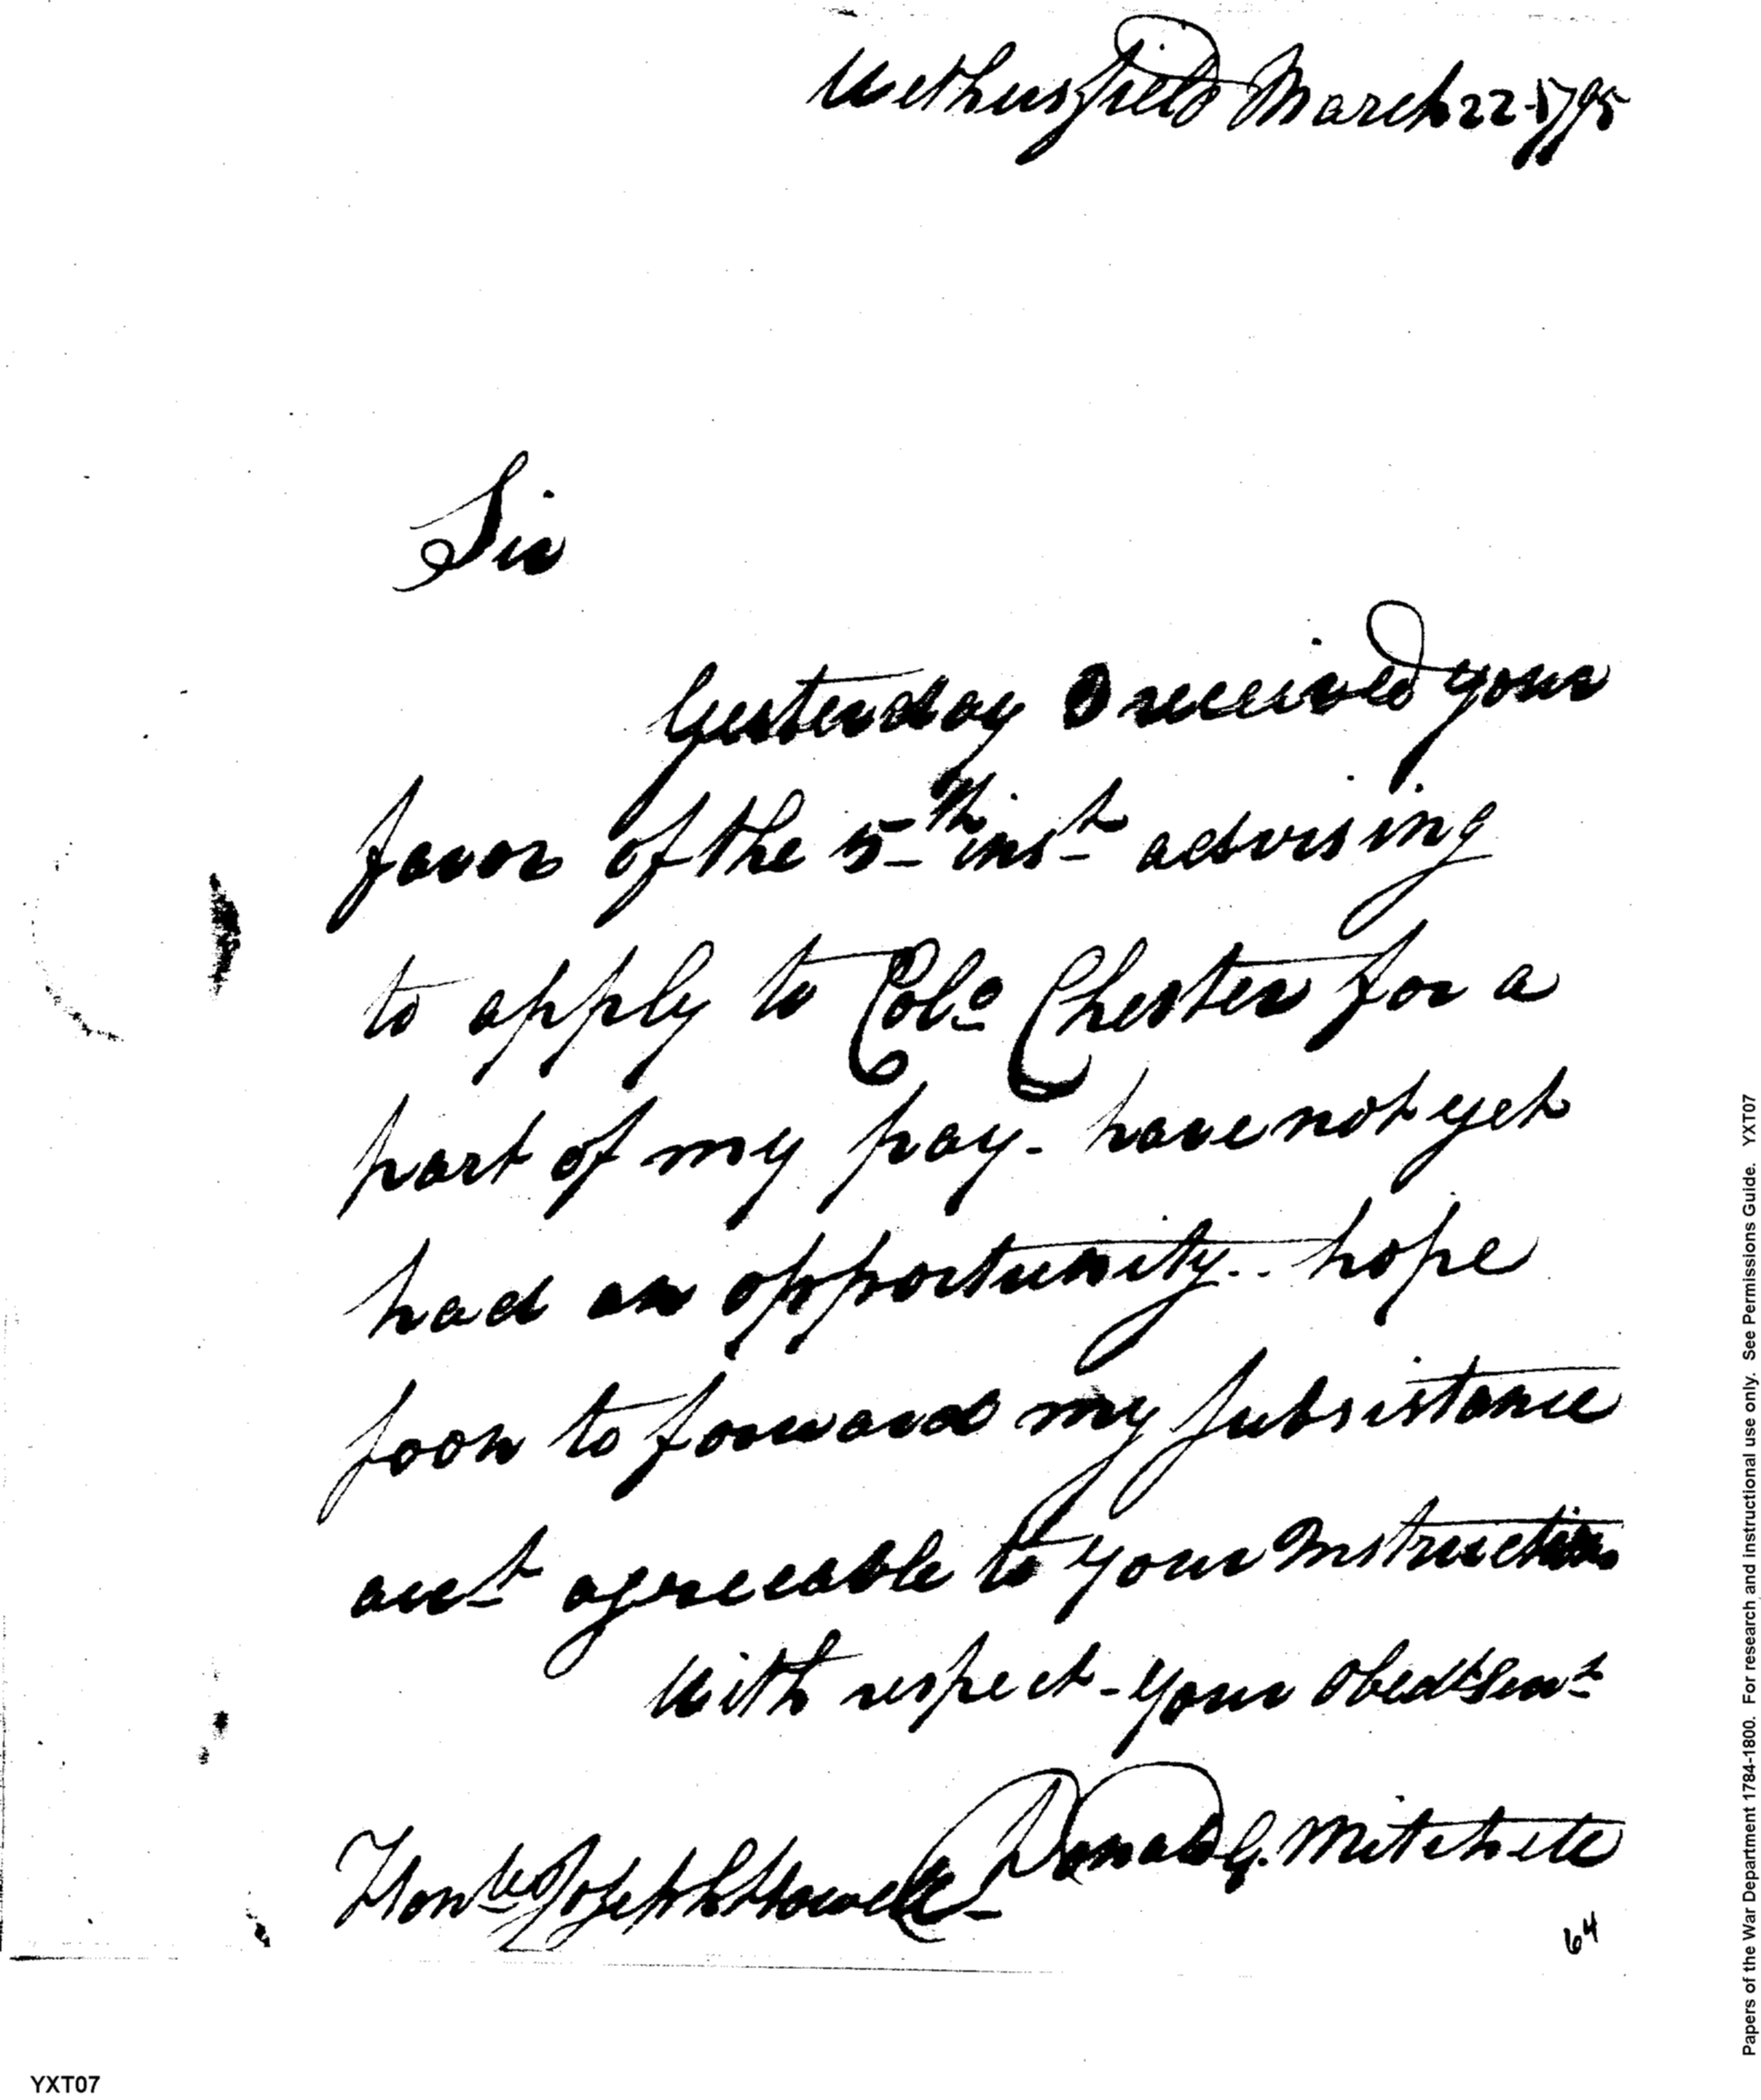 Wethersfield March 22-1795
Sir
Yesterday I received your
favor of the 5th inst advising
to apply to Colo Chester for a
part of my pay - have not yet
had an opportunity.. hope
soon to forward my Subsistance
acct agreeable to your Instructions
With respect - your Obedt Servt
Donald G. Mitchell
Honble Joseph Howell -
64
YXT07
Papers of the War Department 1784-1800. For research and instructional use only. See Permissions Guide. YXT07